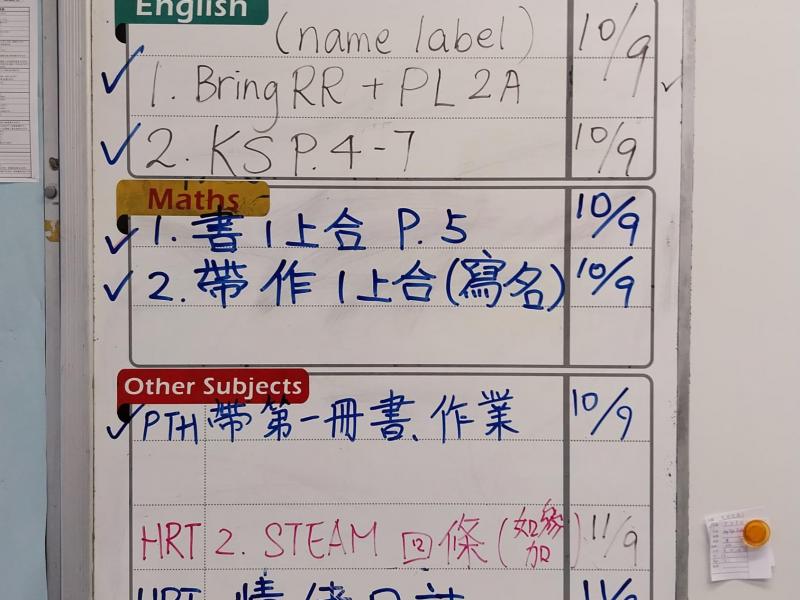 English
(name label) 10/9
1. Bring RR + PL 2A
2. KS P.4-7 10/9
Maths
1. 書1上合 P.5 10/9
2. 帶作1上合(寫名) 10/9
Other Subjects
PTH 帶第一冊書、作業 10/9
HRT 2. STEAM 回條(如參加) 11/9
HRT 情緒日誌 11/9